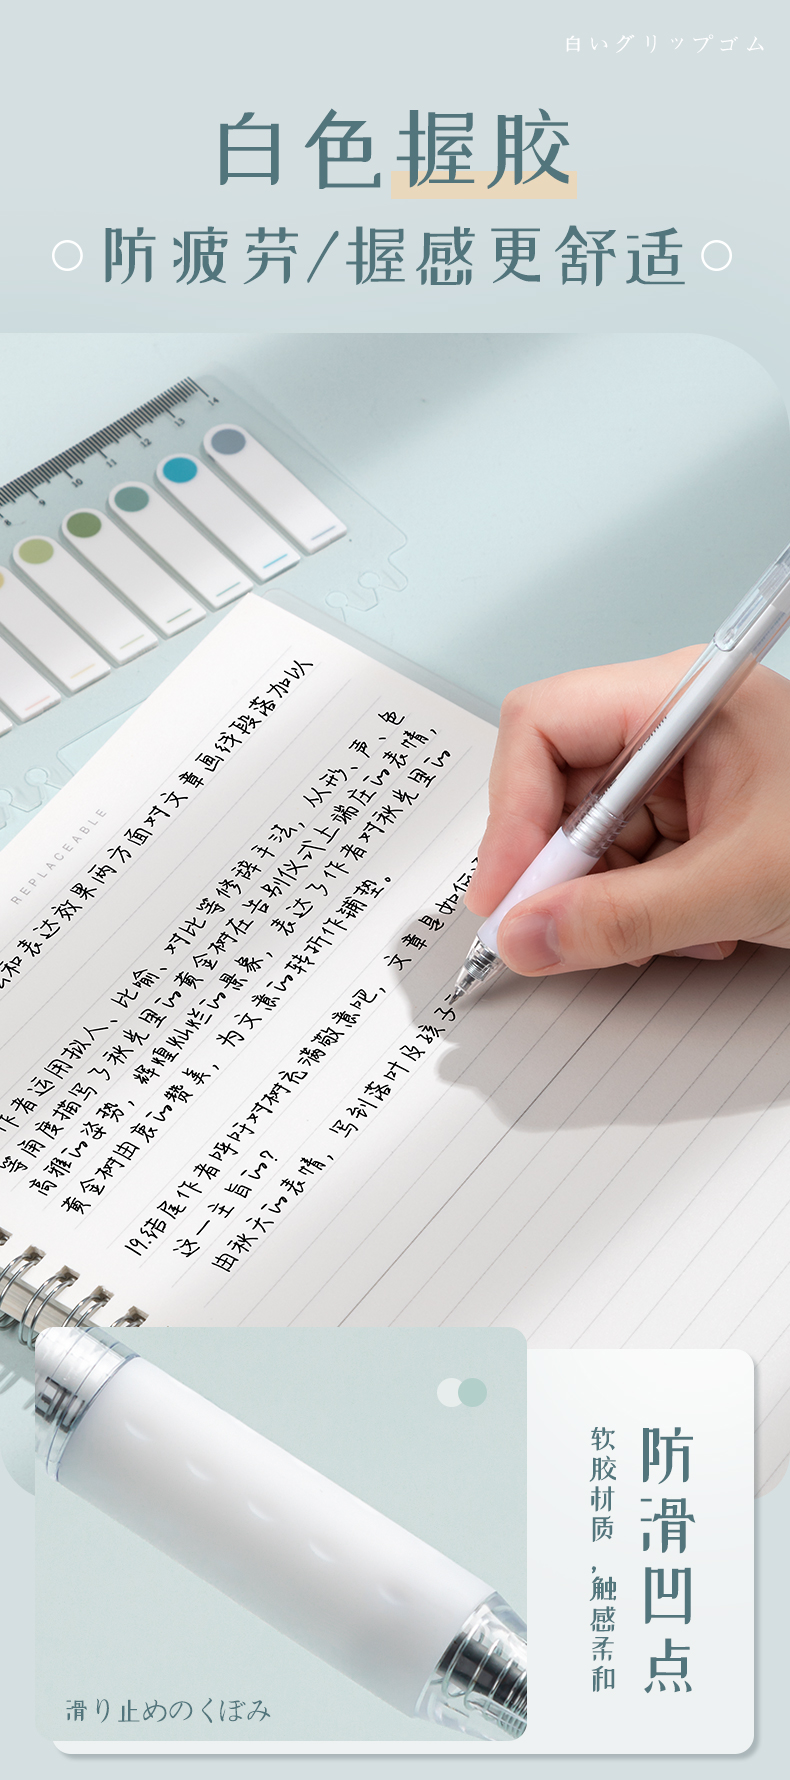 白いグリップゴム
白色握胶
防疲劳/握感更舒适
14
13
12
11
10
9
8
REPLACEABLE
和表达效果两方面对文章画线段落加以
作者运用拟人、比喻、对比等修辞手法，从形、声、色
等角度描写了秋光里的黄金树在告别仪式上端庄的表情，
高雅的姿势，辉煌灿烂的景象，表达了作者对秋光里的
黄金树由衷的赞美，为文意的转折作铺垫。
19.结尾作者呼吁对树充满敬意吧，文章是如何
这一主旨的？
由秋天的表情，写到落叶及孩子
防滑凹点
软胶材质，触感柔和
滑り止めのくぼみ